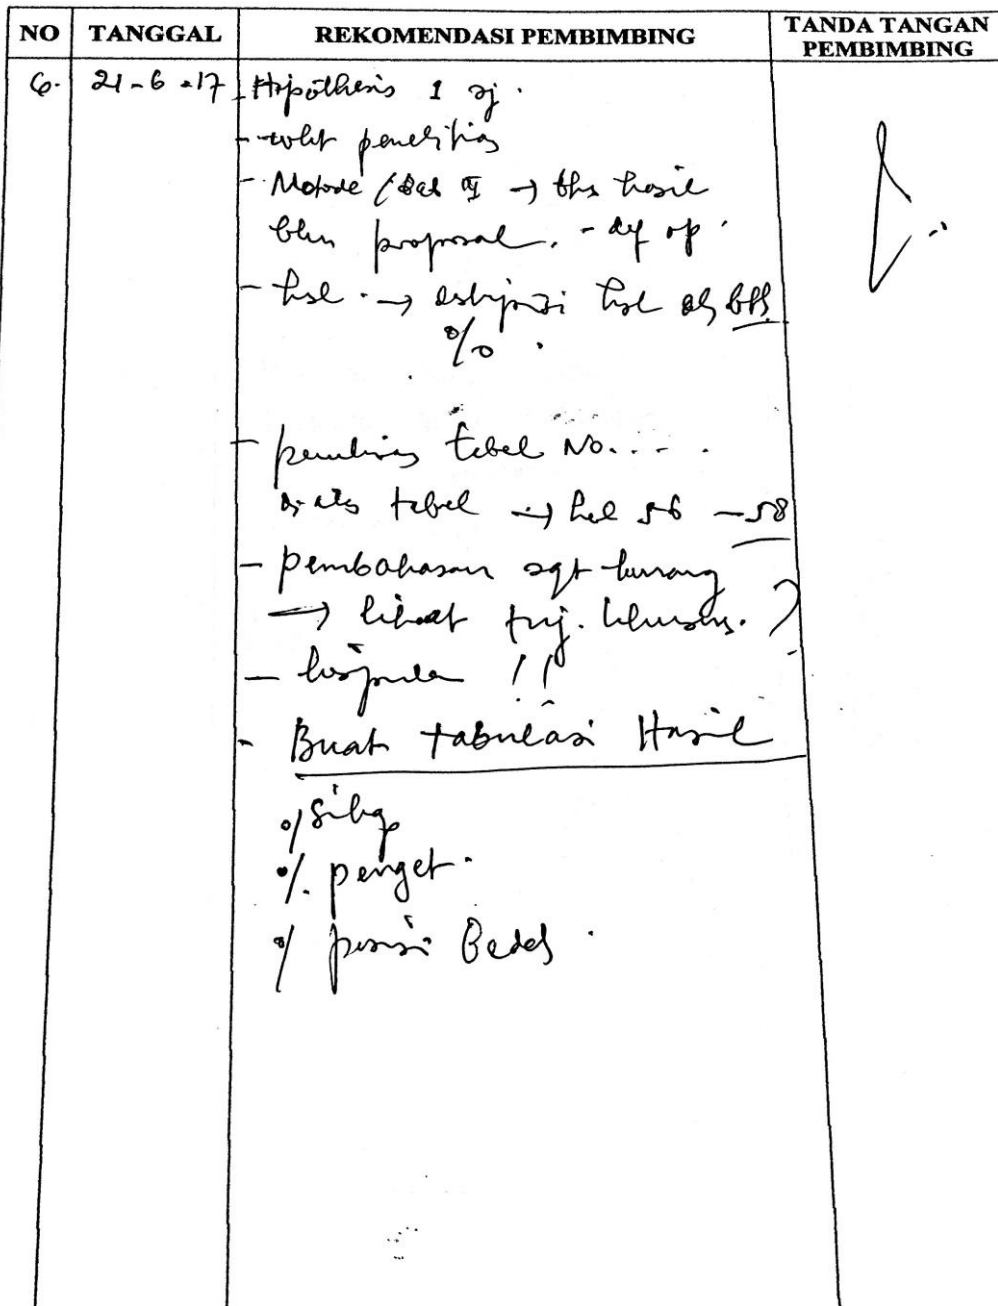 NO TANGGAL REKOMENDASI PEMBIMBING TANDA TANGAN PEMBIMBING
6. 21-6-17 - Hipothesis 1 sj.
- wkt penelitian
- Metode / Bab → bhs hasil
bkn proposal. - df op.
- hsl. →
%.
- penulisan tabel No. ....
di atas tabel → hal 56 - 58
- pembahasan sgt kurang
→ lihat tuj. khusus. ?
- !!
- Buat tabulasi Hasil
% Sikap
%. penget.
%